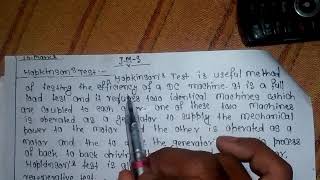 10 Marks
Hopkinson's Test:- Hopkinson's Test is useful method
of testing the efficiency of a DC machine. It is a full
load test and it requires two identical machines which
are coupled to each other. One of these two machines
is operated as a generator to supply the mechanical
power to the motor and the other is operated as a
motor and the to drive the generator process
of back to back driving
Hopkinson's test is al
regenerative test.